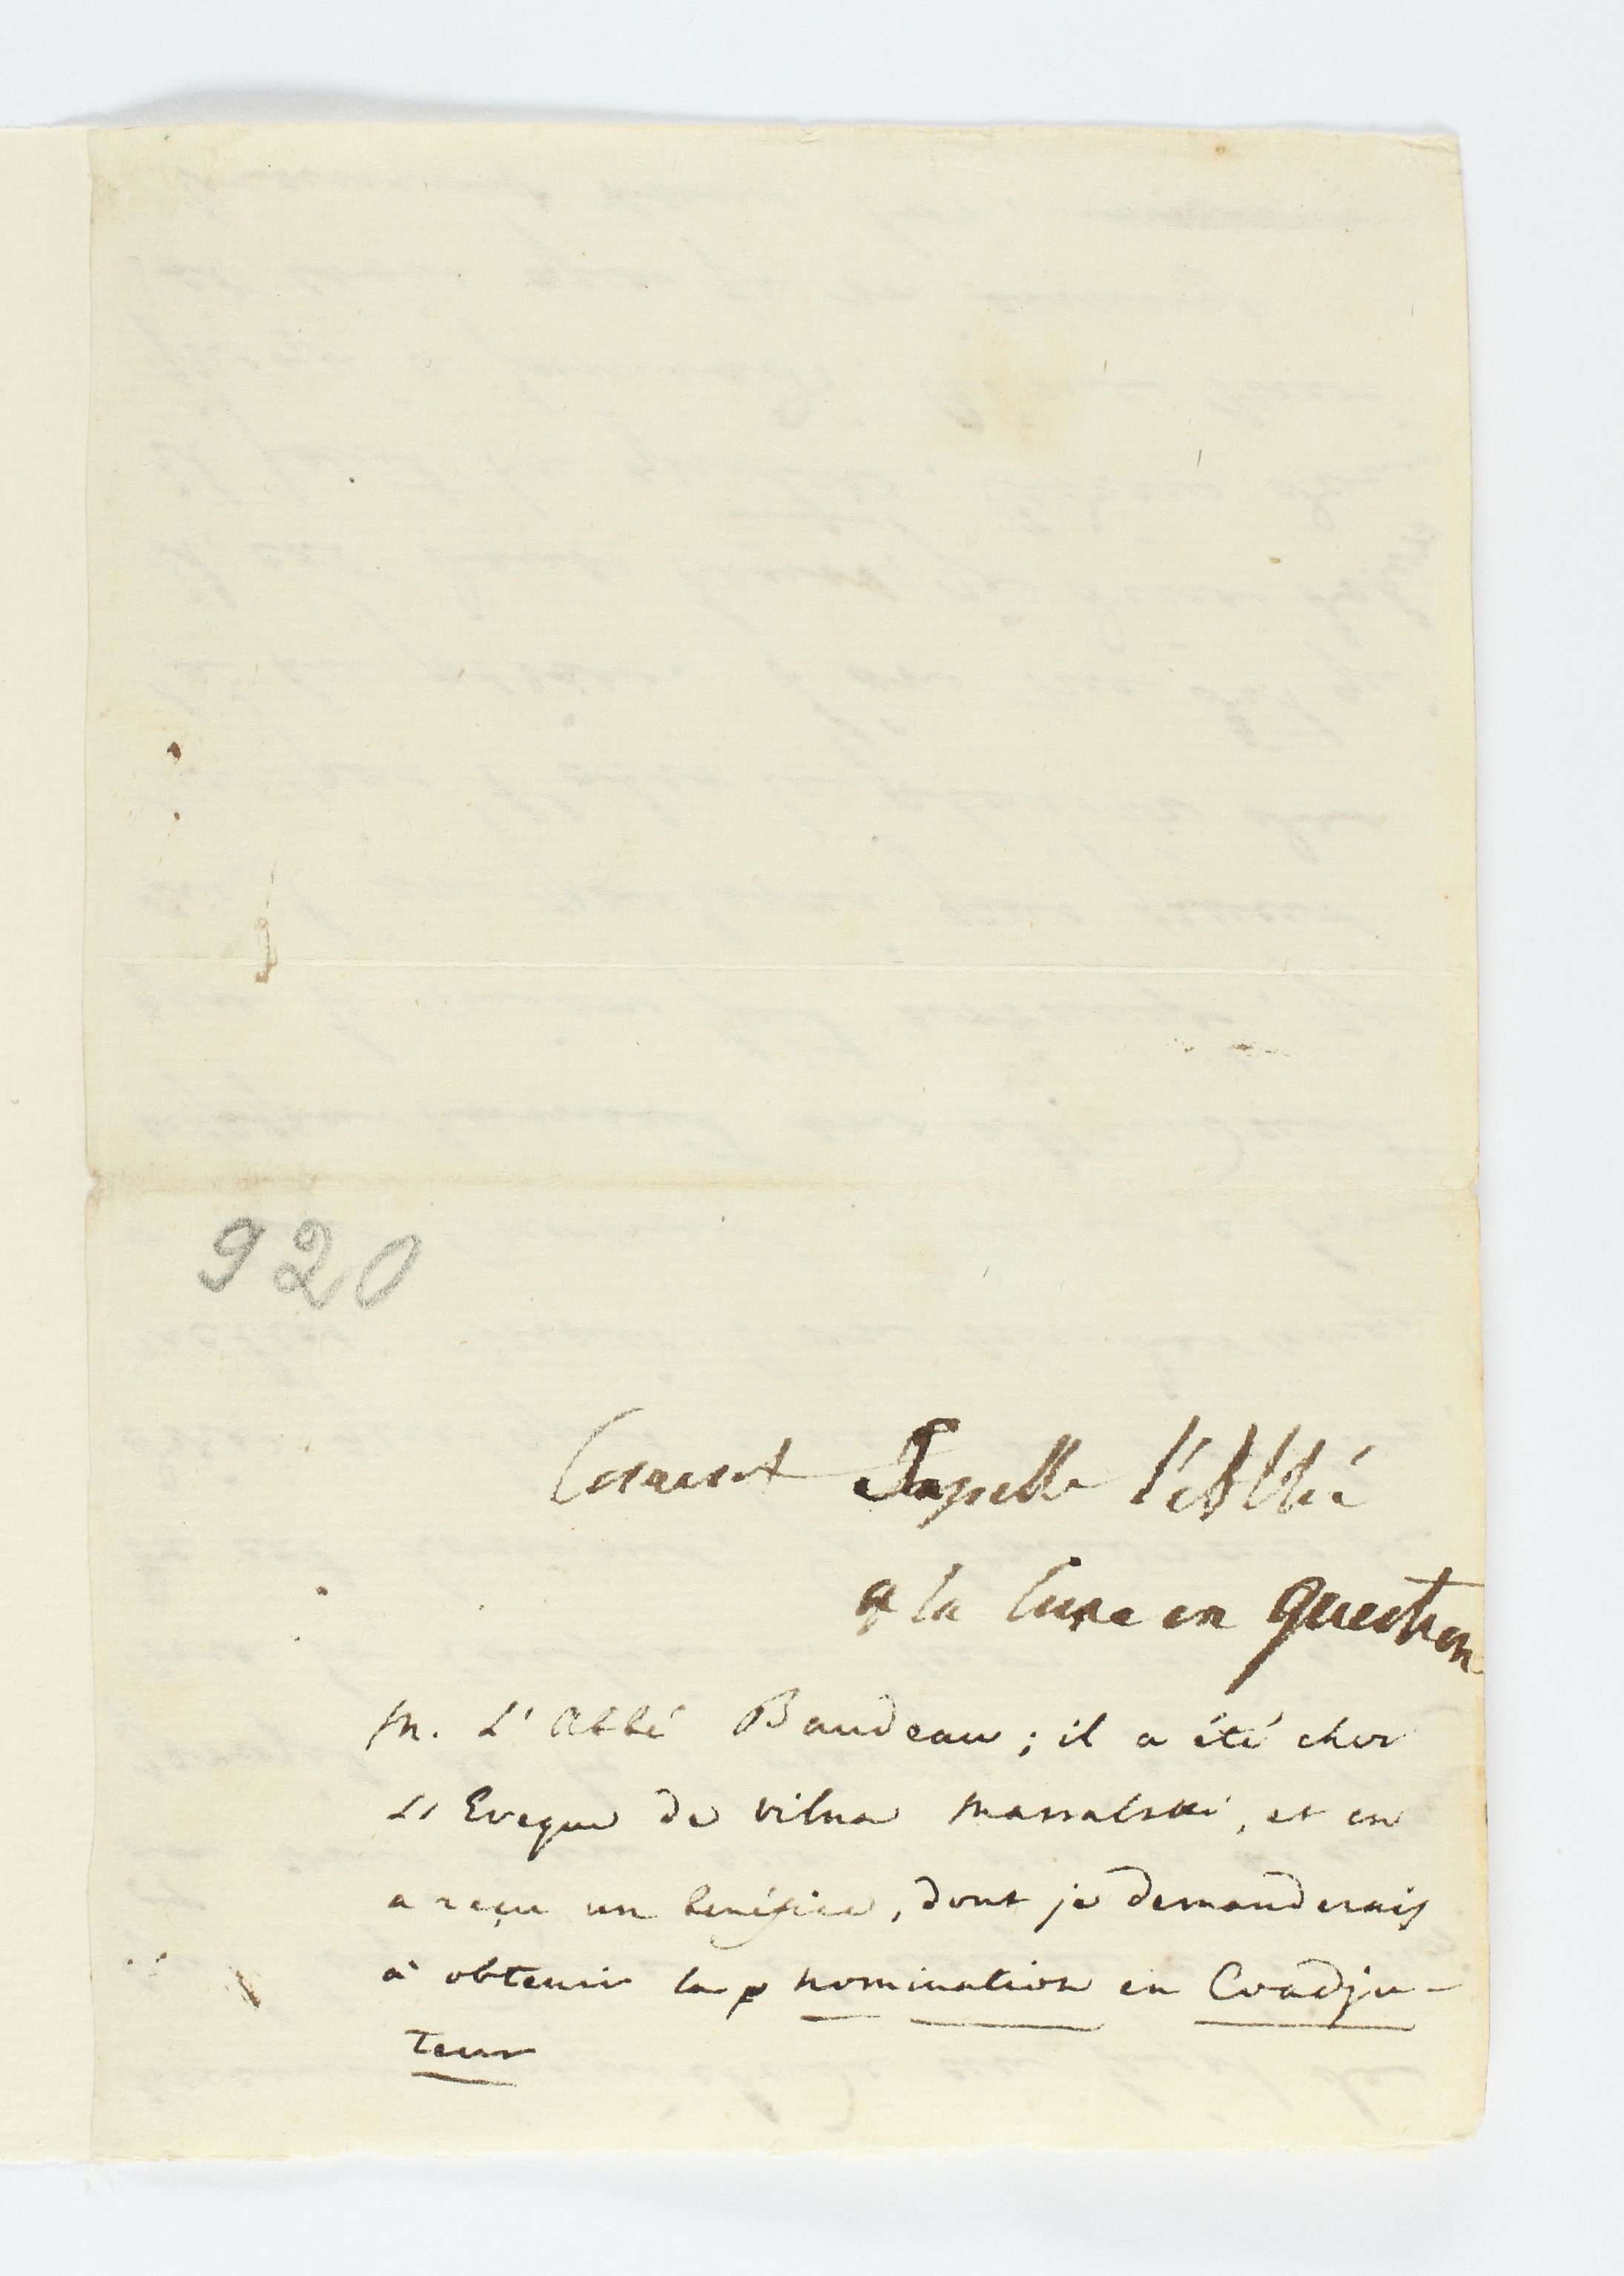 920
Coment S'apelle l'Abbé
& la Cure en question
M. L'Abbé Baudeau ; il a été chez
L'Eveque de Vilna Massalski, et en
a reçu un benéfice, dont je demanderais
à obtenir la nomination en Coadju-
teur